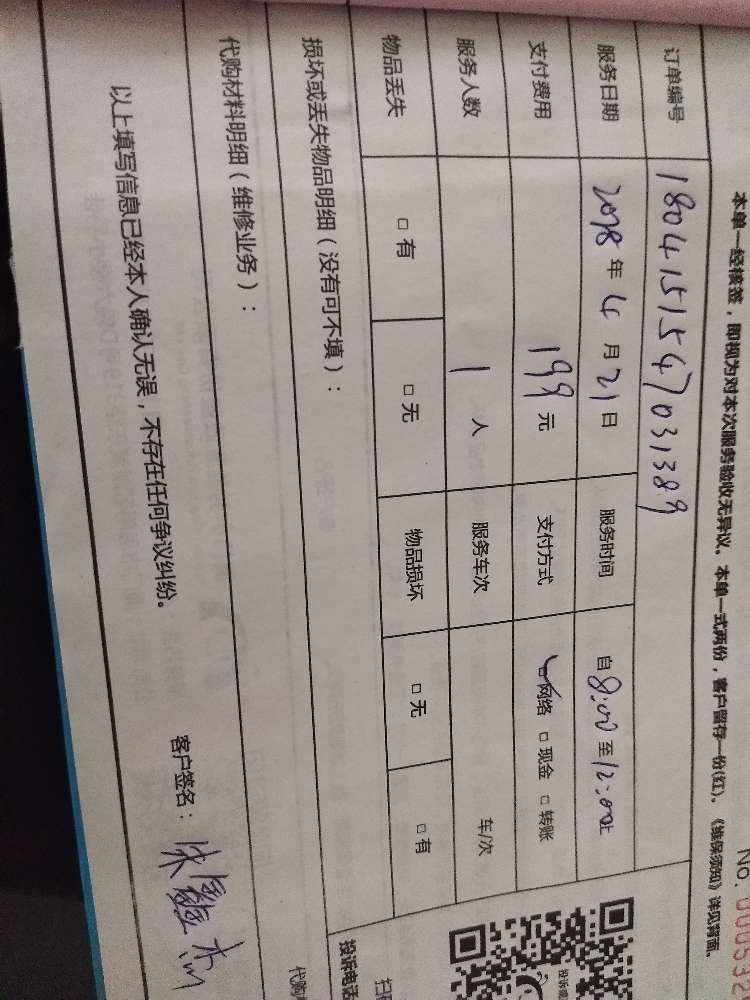 No. 000532
本单一经核签，即视为对本次服务验收无异议。本单一式两份，客户留存一份(红)。《维保须知》详见背面。
订单编号 1804151547031389
服务日期 2018 年 4 月 21 日 服务时间 自 8:00 至 12:00 止
支付费用 199 元 支付方式 □ 网络 □ 现金 □ 转账
服务人数 1 人 服务车次 车/次
物品丢失 □ 有 □ 无 物品损坏 □ 无 □ 有
损坏或丢失物品明细（没有可不填）：
代购材料明细（维修业务）：
以上填写信息已经本人确认无误，不存在任何争议纠纷。
客户签名：
投诉电话
代购